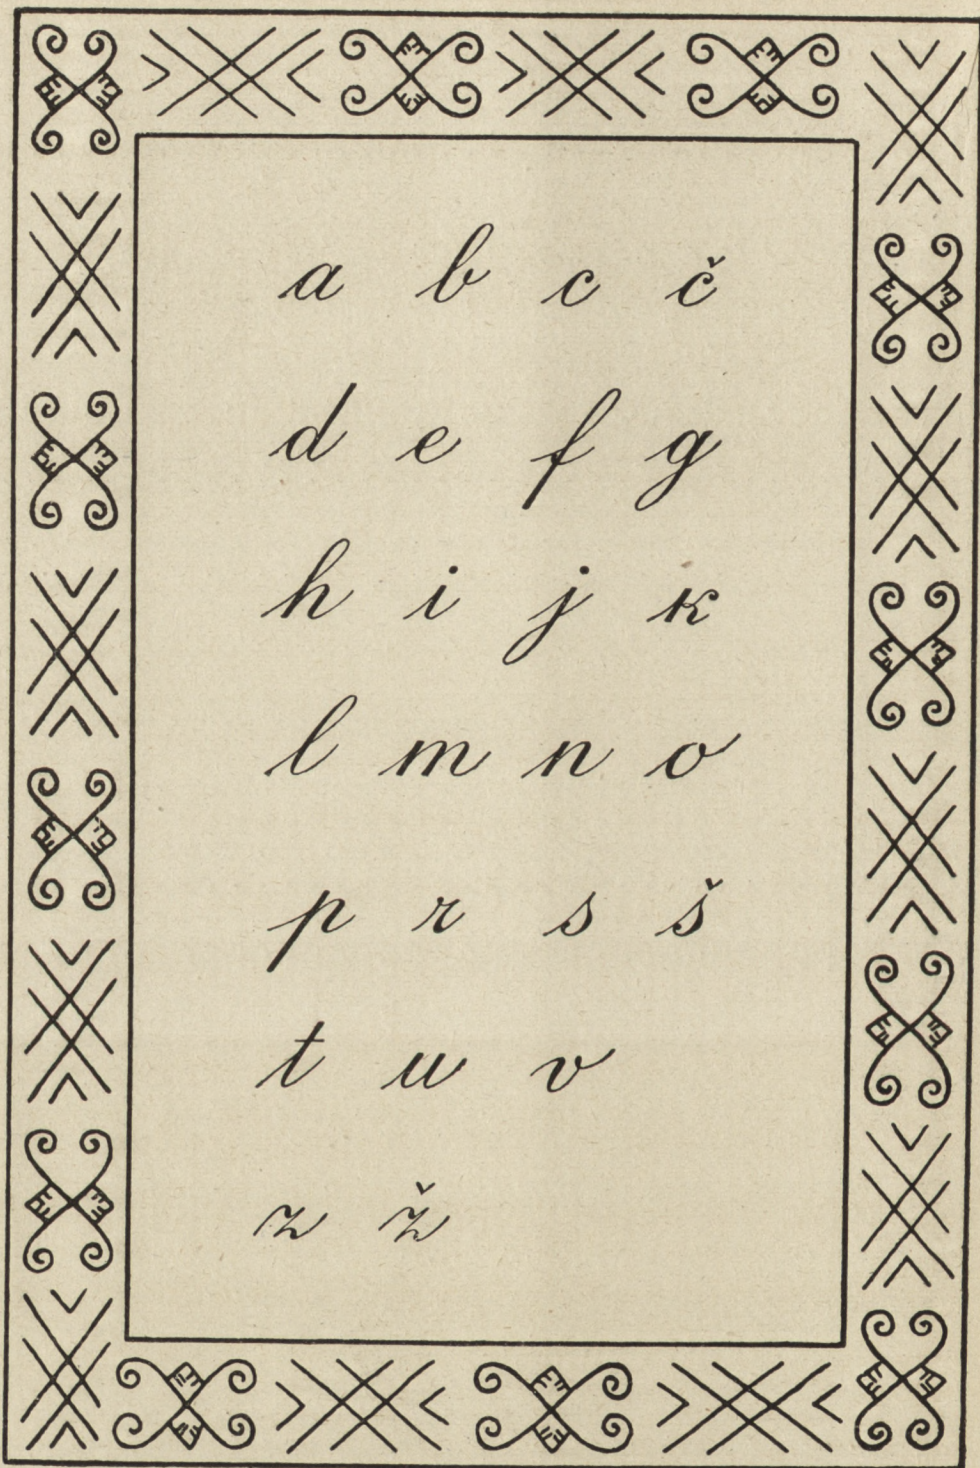 a b c č
d e f g
h i j k
l m n o
p r s š
t u v
z ž